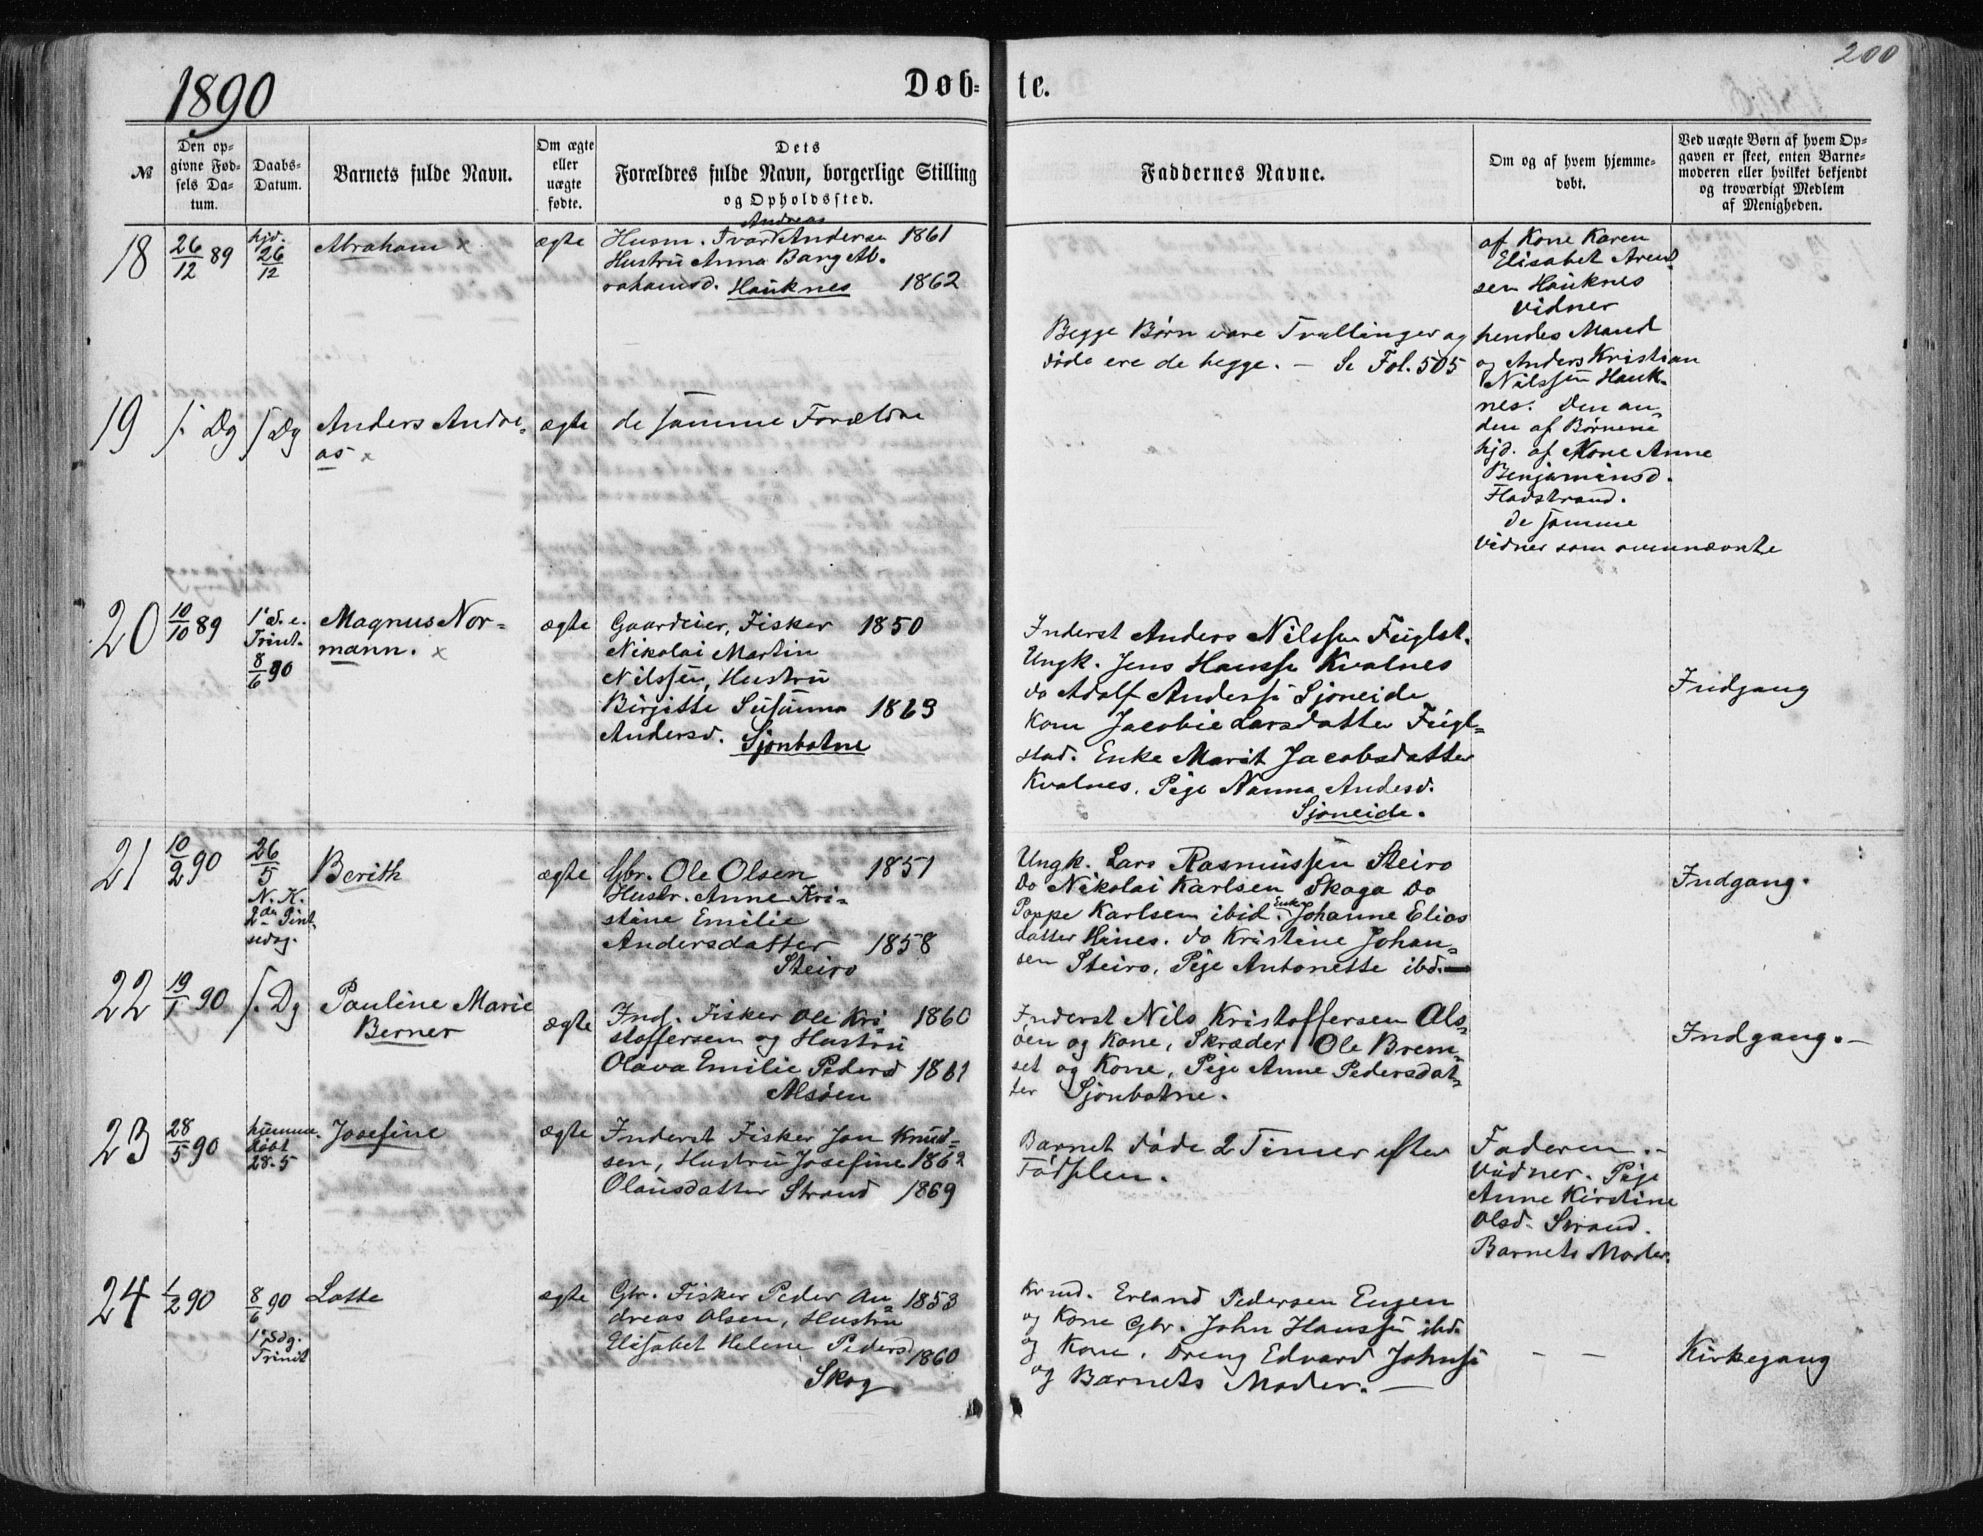 200
1890
Døb-
te.
№
Den op-
givne Fød-
sels Da-
tum.
Daabs-
Datum.
Barnets fulde Navn.
Om ægte
eller
uægte
fødte.
Dets
Forældres fulde Navn, borgerlige Stilling
og Opholdssted.
Faddernes Navne.
Om og af hvem hjemme-
døbt.
Ved uægte Børn af hvem Op-
gaven er skeet, enten Barne-
moderen eller hvilket bekjendt
og troværdigt Medlem
af Menigheden.
18
26/12 89
hjd.
26/12
Abraham x
ægte
Andreas
Husm. Ivar Anderse 1861
Hustru Anna Bang Ab-
rahamsd. Hauknes 1862
af Kone Karen
Elisabet Arent
sen Hauknes
Vidner
hendes Mand
og Anders Kristian
Nilssen Hauk-
nes. Den an-
den af Børnene
hjd. af Kone Anne
Benjaminsd.
Flostrand.
de samme
Vidner som ovennævnte
Begge Børn vare Tvillinger og
døde ere de begge. – Se Fol. 505
19
s. Dg
s Dg
Anders Andre-
as x
ægte
de samme Forældre
20
10/10 89
1 S. e.
Trinit.
8/6 90
Magnus Nor-
mann. x
ægte
Gaardeier, Fisker 1850
Nikolai Martin
Nilssen, Hustru
Birgitte Susanna 1863
Andersd. Sjonbotne
Inderst Anders Nilssen Fuglst.
Ungk. Jens Hansse Kvalnes
do Adolf Anderss Sjoneide
Kone Jacobie Larsdatter Fugl-
stad. Enke Marit Jacobsdatter
Kvalnes. Pige Nanna Andersd.
Sjoneide.
Indgang
21
10/2 90
26/5
N. K.
2den Pint
sedag.
Berith
ægte
Gbr. Ole Olsen 1851
Hustr. Anne Kri-
stine Emilie
Andersdatter 1858
Steiro
Ungk. Lars Rasmussen Steiro
do Nikolai Karlsen Skoga do
Poppe Karlsen ibid. Enke Johanne Elias
datter Hines. do Kristine Johan-
sen Steiro, Pige Antonette ibd.
Indgang.
22
19/1 90
s. Dg
Pauline Marie
Berner
ægte
Ind. Fisker Ole Kri- 1860
stoffersen og Hustru
Olava Emilie Pedersd 1861
Alsøen
Inderst Nils Kristoffersen Als-
øen og Kone, Skræder Ole Brem-
set og Kone, Pige Anne Pedersdat-
ter Sjonbotne.
Indgang. –
23
28/5 90
hjemme
døbt
28-5
Josefine
ægte
Inderst Fisker Jon Knud-
sen, Hustru Josefine 1862
Olausdatter Strand 1869
Barnet døde 2 Timer efter
Fødslen.
Faderen. –
Vidner. Pige
Anne Kirstine
Olsd. Strand.
Barnets Moder.
24
1/2 90
8/6 90
1 Sdg.
Trinit
Lotte
ægte
Gbr. Fisker Peder An- 1853
dreas Olsen, Hustru
Elisabet Helene Pedersd
1860
Skog
Erland Pedersen Engen
og Kone Gbr. John Hanssen ibd.
og Kone. Dreng Edvard Johnse
og Barnets Moder. –
– –
Kirkegang